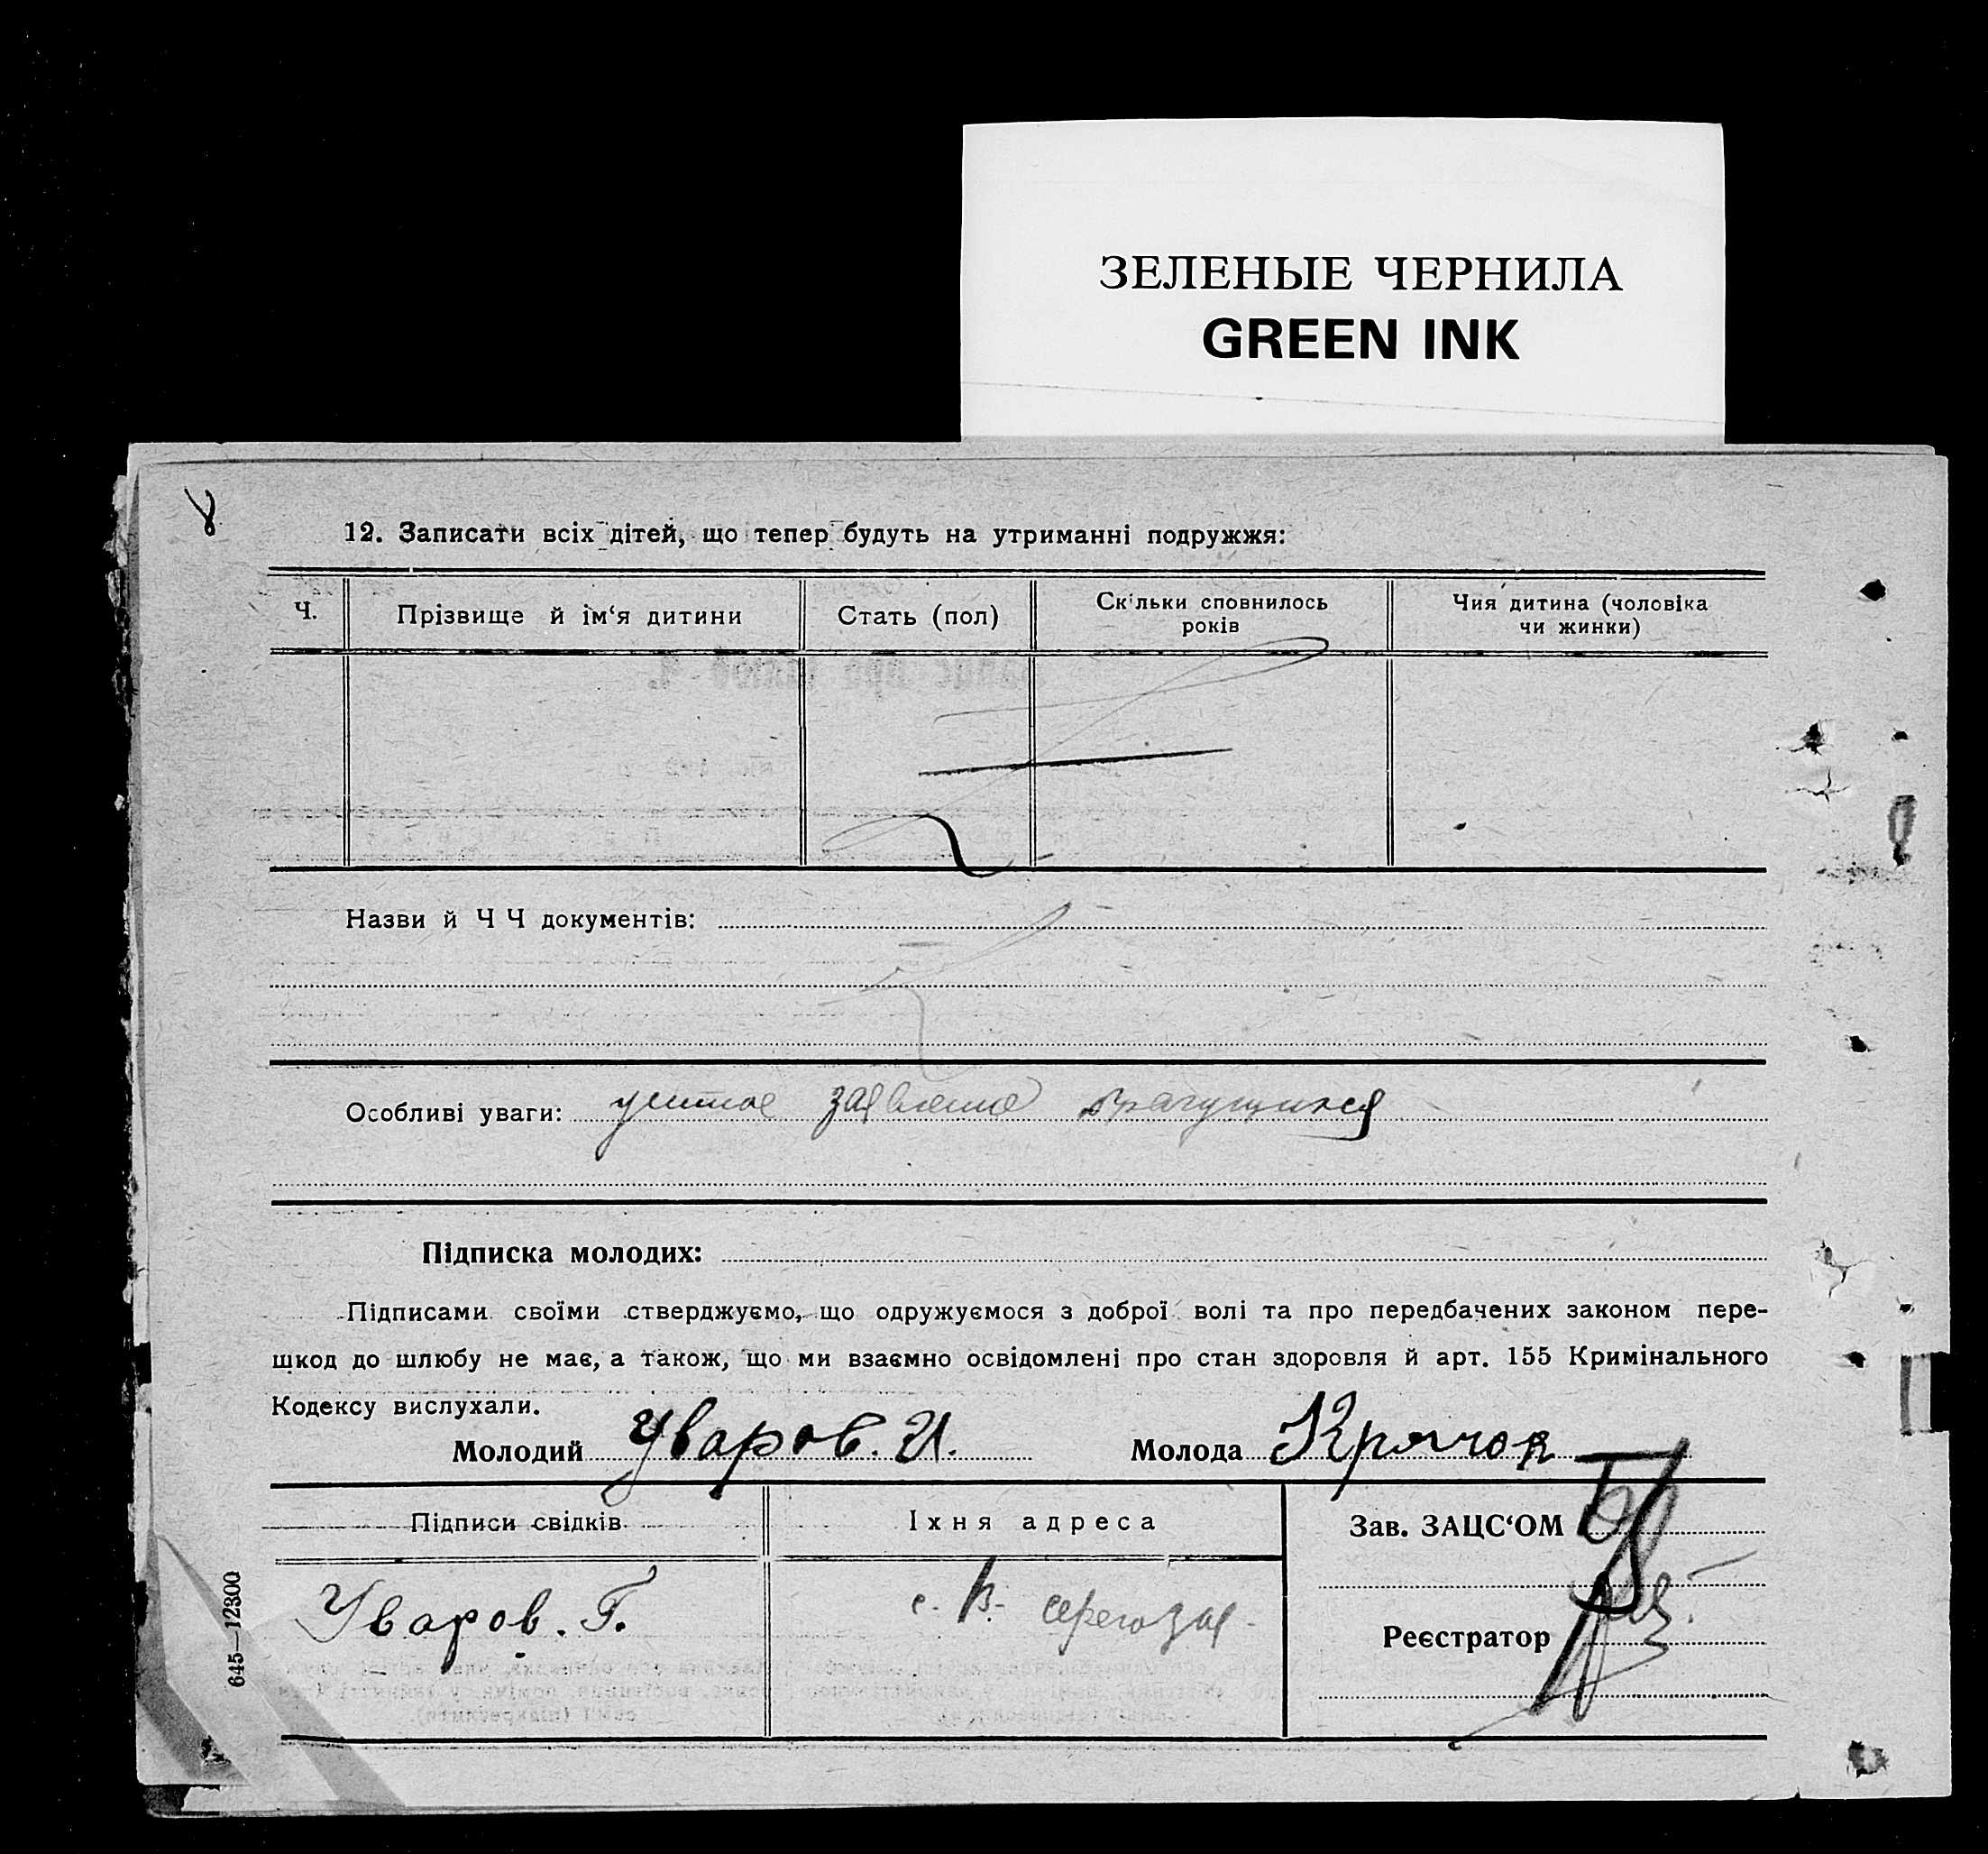 ЗЕЛЕНЫЕ ЧЕРНИЛА
GREEN INK
8
12. Записати всіх дітей, що тепер будуть на утриманні подружжя:
Ч. Прізвище й ім‘я дитини Стать (пол) Скільки сповнилось років Чия дитина (чоловіка чи жинки)
Назви й Ч Ч документів:
Особливі уваги: устное заявление брачущихся
Підписка молодих:
Підписами своїми стверджуємо, що одружуємося з доброї волі та про передбачених законом пере-
шкод до шлюбу не має, а також, що ми взаємно освідомлені про стан здоровля й арт. 155 Кримінального
Кодексу вислухали.
Молодий Уваров. И. Молода Крячок
Підписи свідків Їхня адреса Зав. ЗАЦС‘ОМ
Уваров. Г. с. В- серегозы-
Реєстратор
645—12300